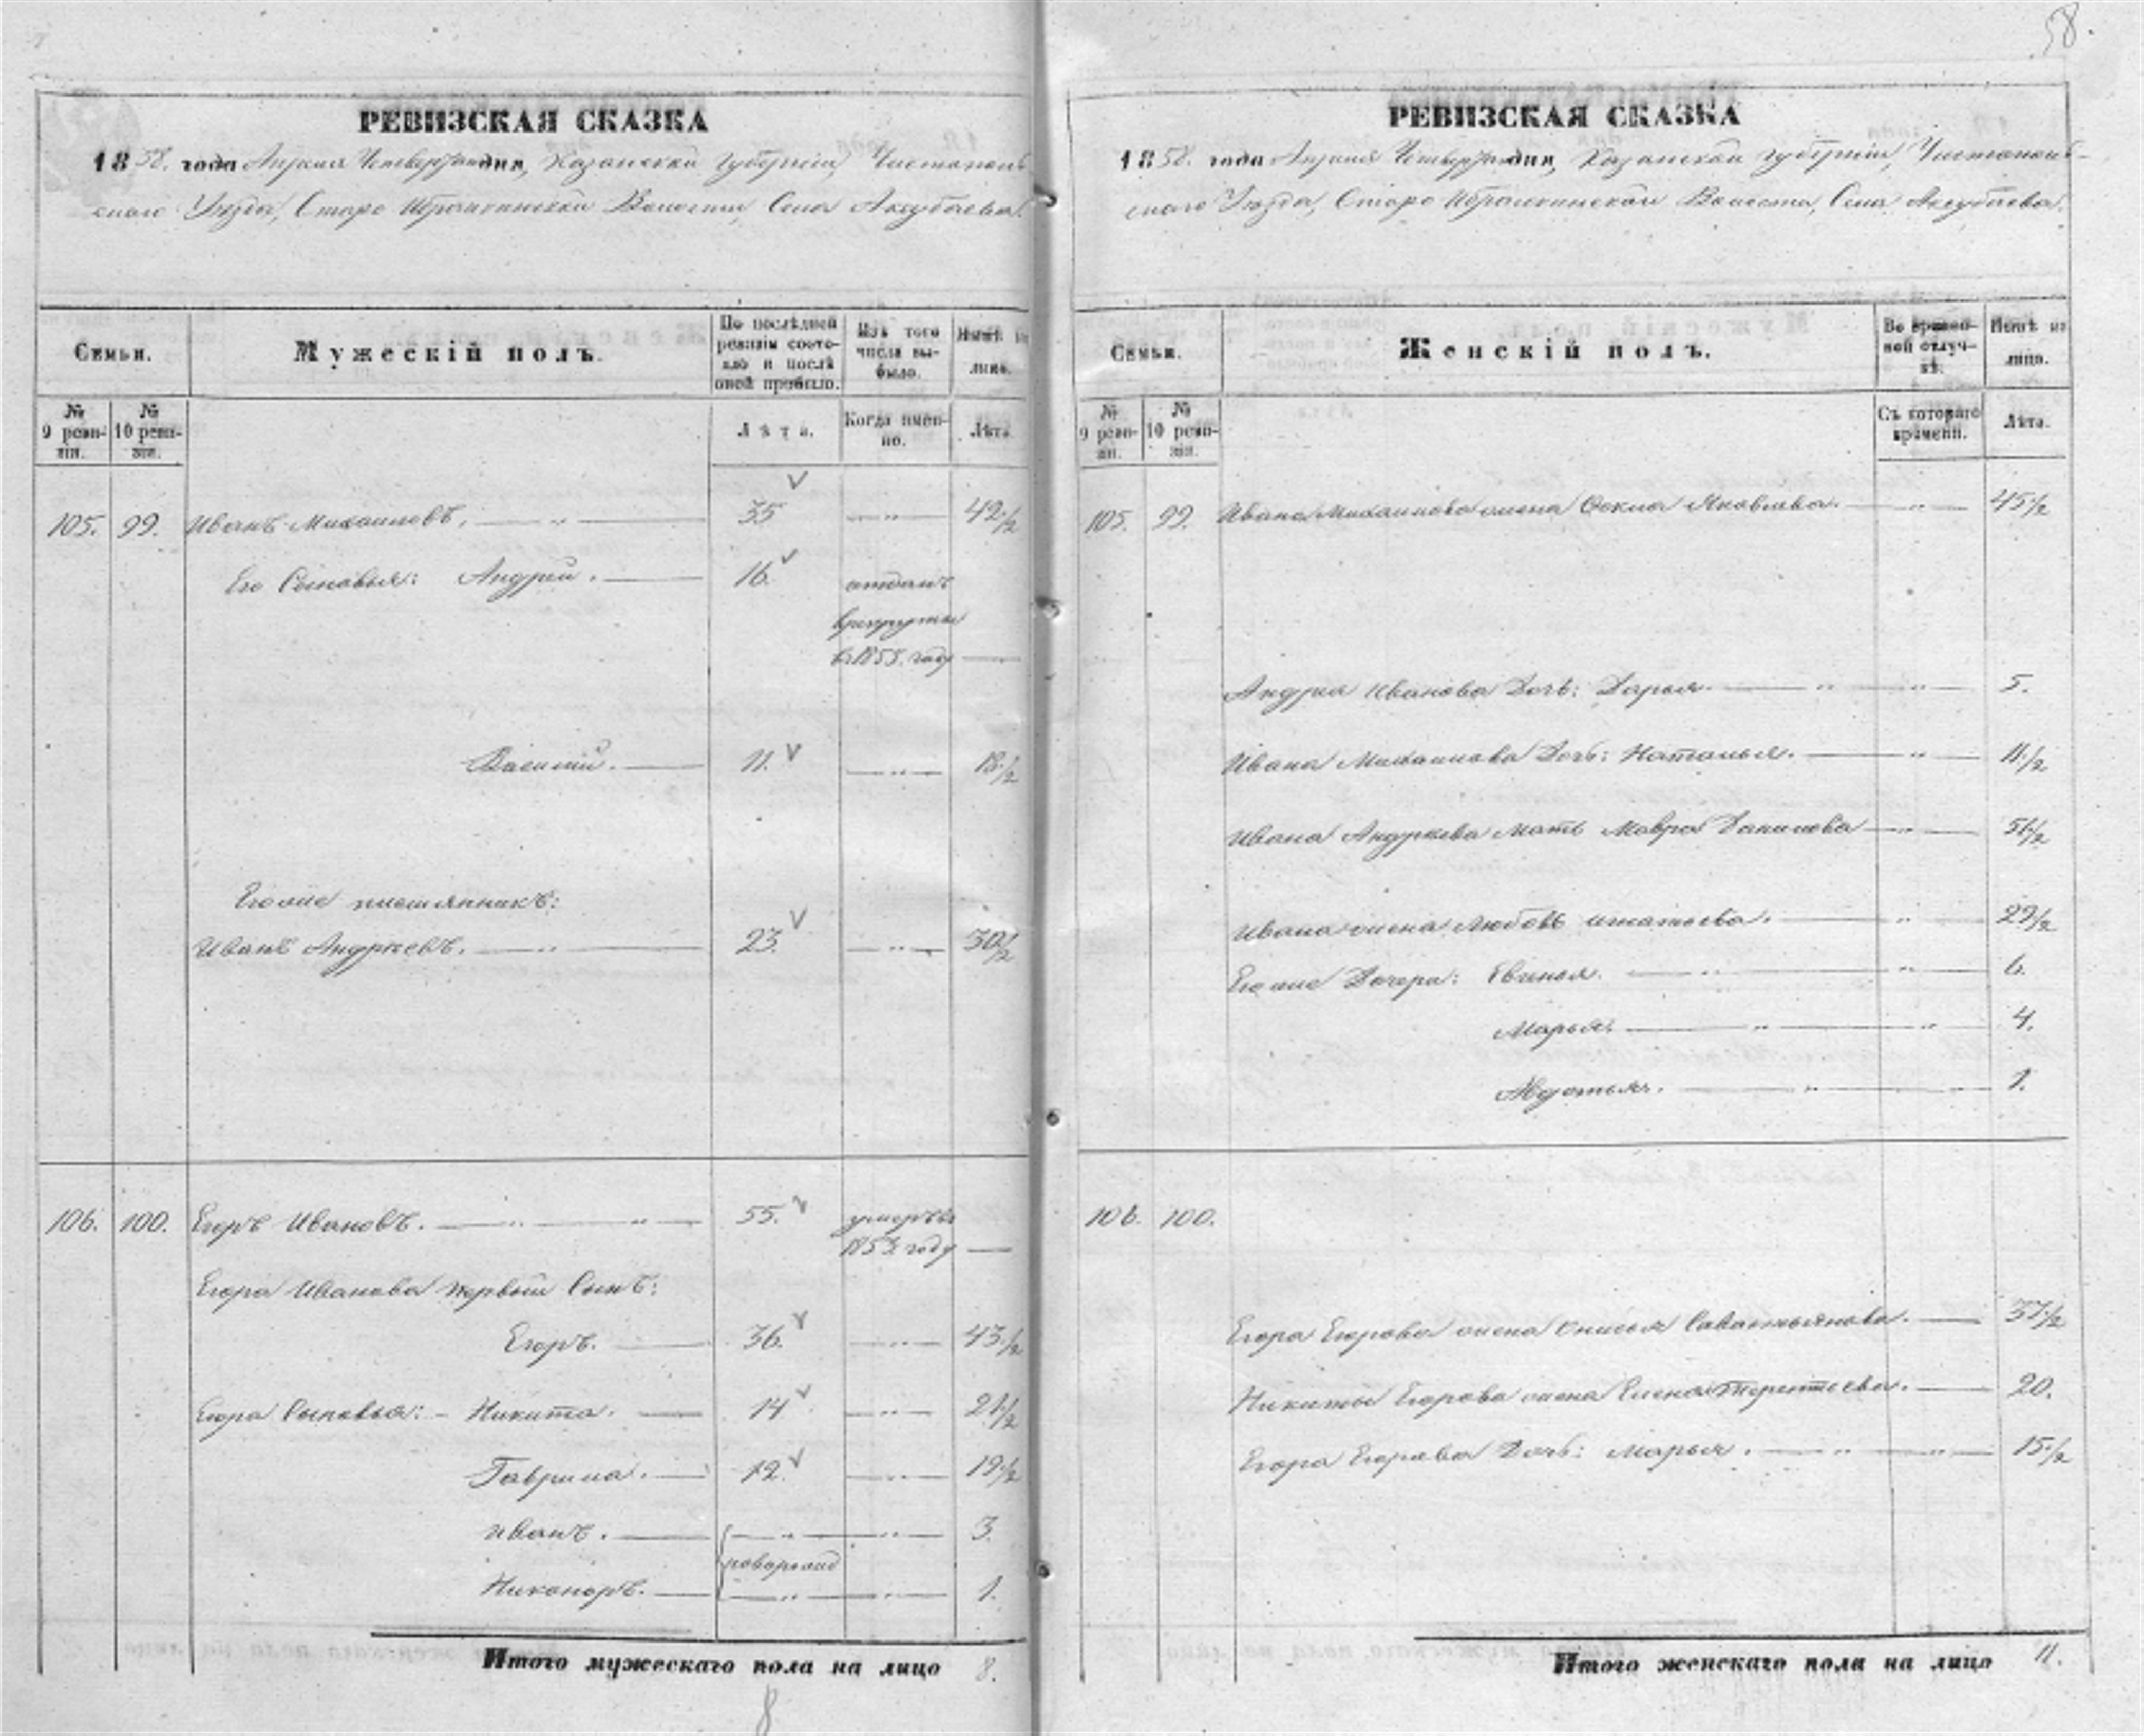 58.
РЕВИЗСКАЯ СКАЗКА
1858. года Апреля Четвертаго дня, Казанской губернiи, Чистополь-
скаго Уѣзда, Старо Ибрайкинской Волости, Села Аксубаева.
Семьи.
Мужескiй полъ.
По послѣдней ревизiи состояло и послѣ оной прибыло.
Изъ того числа выбыло.
Нынѣ на лицо.
№ 9 ревизiи.
№ 10 ревизiи.
Лѣта.
Когда именно.
Лѣта.
105. 99. Иванъ Михаиловъ. 35 42 1/2
Его Сыновья: Андрей. 16. отданъ
врекруты
в 1855. году
Василiй. 11. 18 1/2
Его же племянникъ:
Иванъ Андреевъ. 23. 30 1/2
106. 100. Егоръ Ивановъ. 55. умеръ въ
1853. году
Егора Иванова первый Сынъ:
Егоръ. 36. 43 1/2
Егора Сыновья: Никита. 14 21 1/2
Гаврила. 12. 19 1/2
Иванъ. 3.
новорожд
Никоноръ. 1.
Итого мужескаго пола на лицо 8.
8
РЕВИЗСКАЯ СКАЗКА
1858. года Апреля Четвертаго дня, Казанской губернiи, Чистополь-
скаго Уѣзда, Старо Ибрайкинской Волости, Села Аксубаева.
Семьи.
Женскiй полъ.
Во временной отлучкѣ.
Нынѣ на лицо.
№ 9 ревизiи.
№ 10 ревизiи.
Съ котораго времени.
Лѣта.
105. 99. Ивана Михаилова жена Фекла Яковлева. 45 1/2
Андрея Иванова Дочь: Дарья. 5.
Ивана Михаилова Дочь: Наталья. 11 1/2
Ивана Андреева мать Мавра Данилова 51 1/2
Ивана жена Любовь Игнатьева. 29 1/2
Его же Дочери: 6.
Марья. 4.
Авдотья. 1.
106. 100.
Егора Егорова жена Онисья Савастьянова. 37 1/2
Никиты Егорова жена Елена Терентьева. 20.
Егора Егорова Дочь: Марья. 15 1/2
Итого женскаго пола на лицо 11.